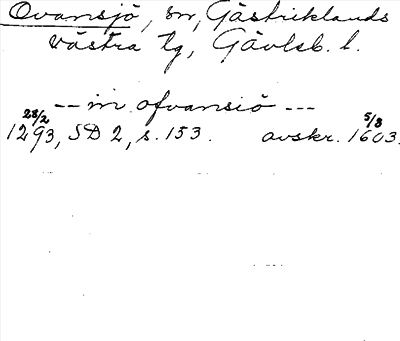 Ovansjö, sn, Gästriklands
västra tg, Gävleb. l.
-- in ofvansiö ---
28/2 1293, SD 2, s. 153. avskr. 5/8 1603.